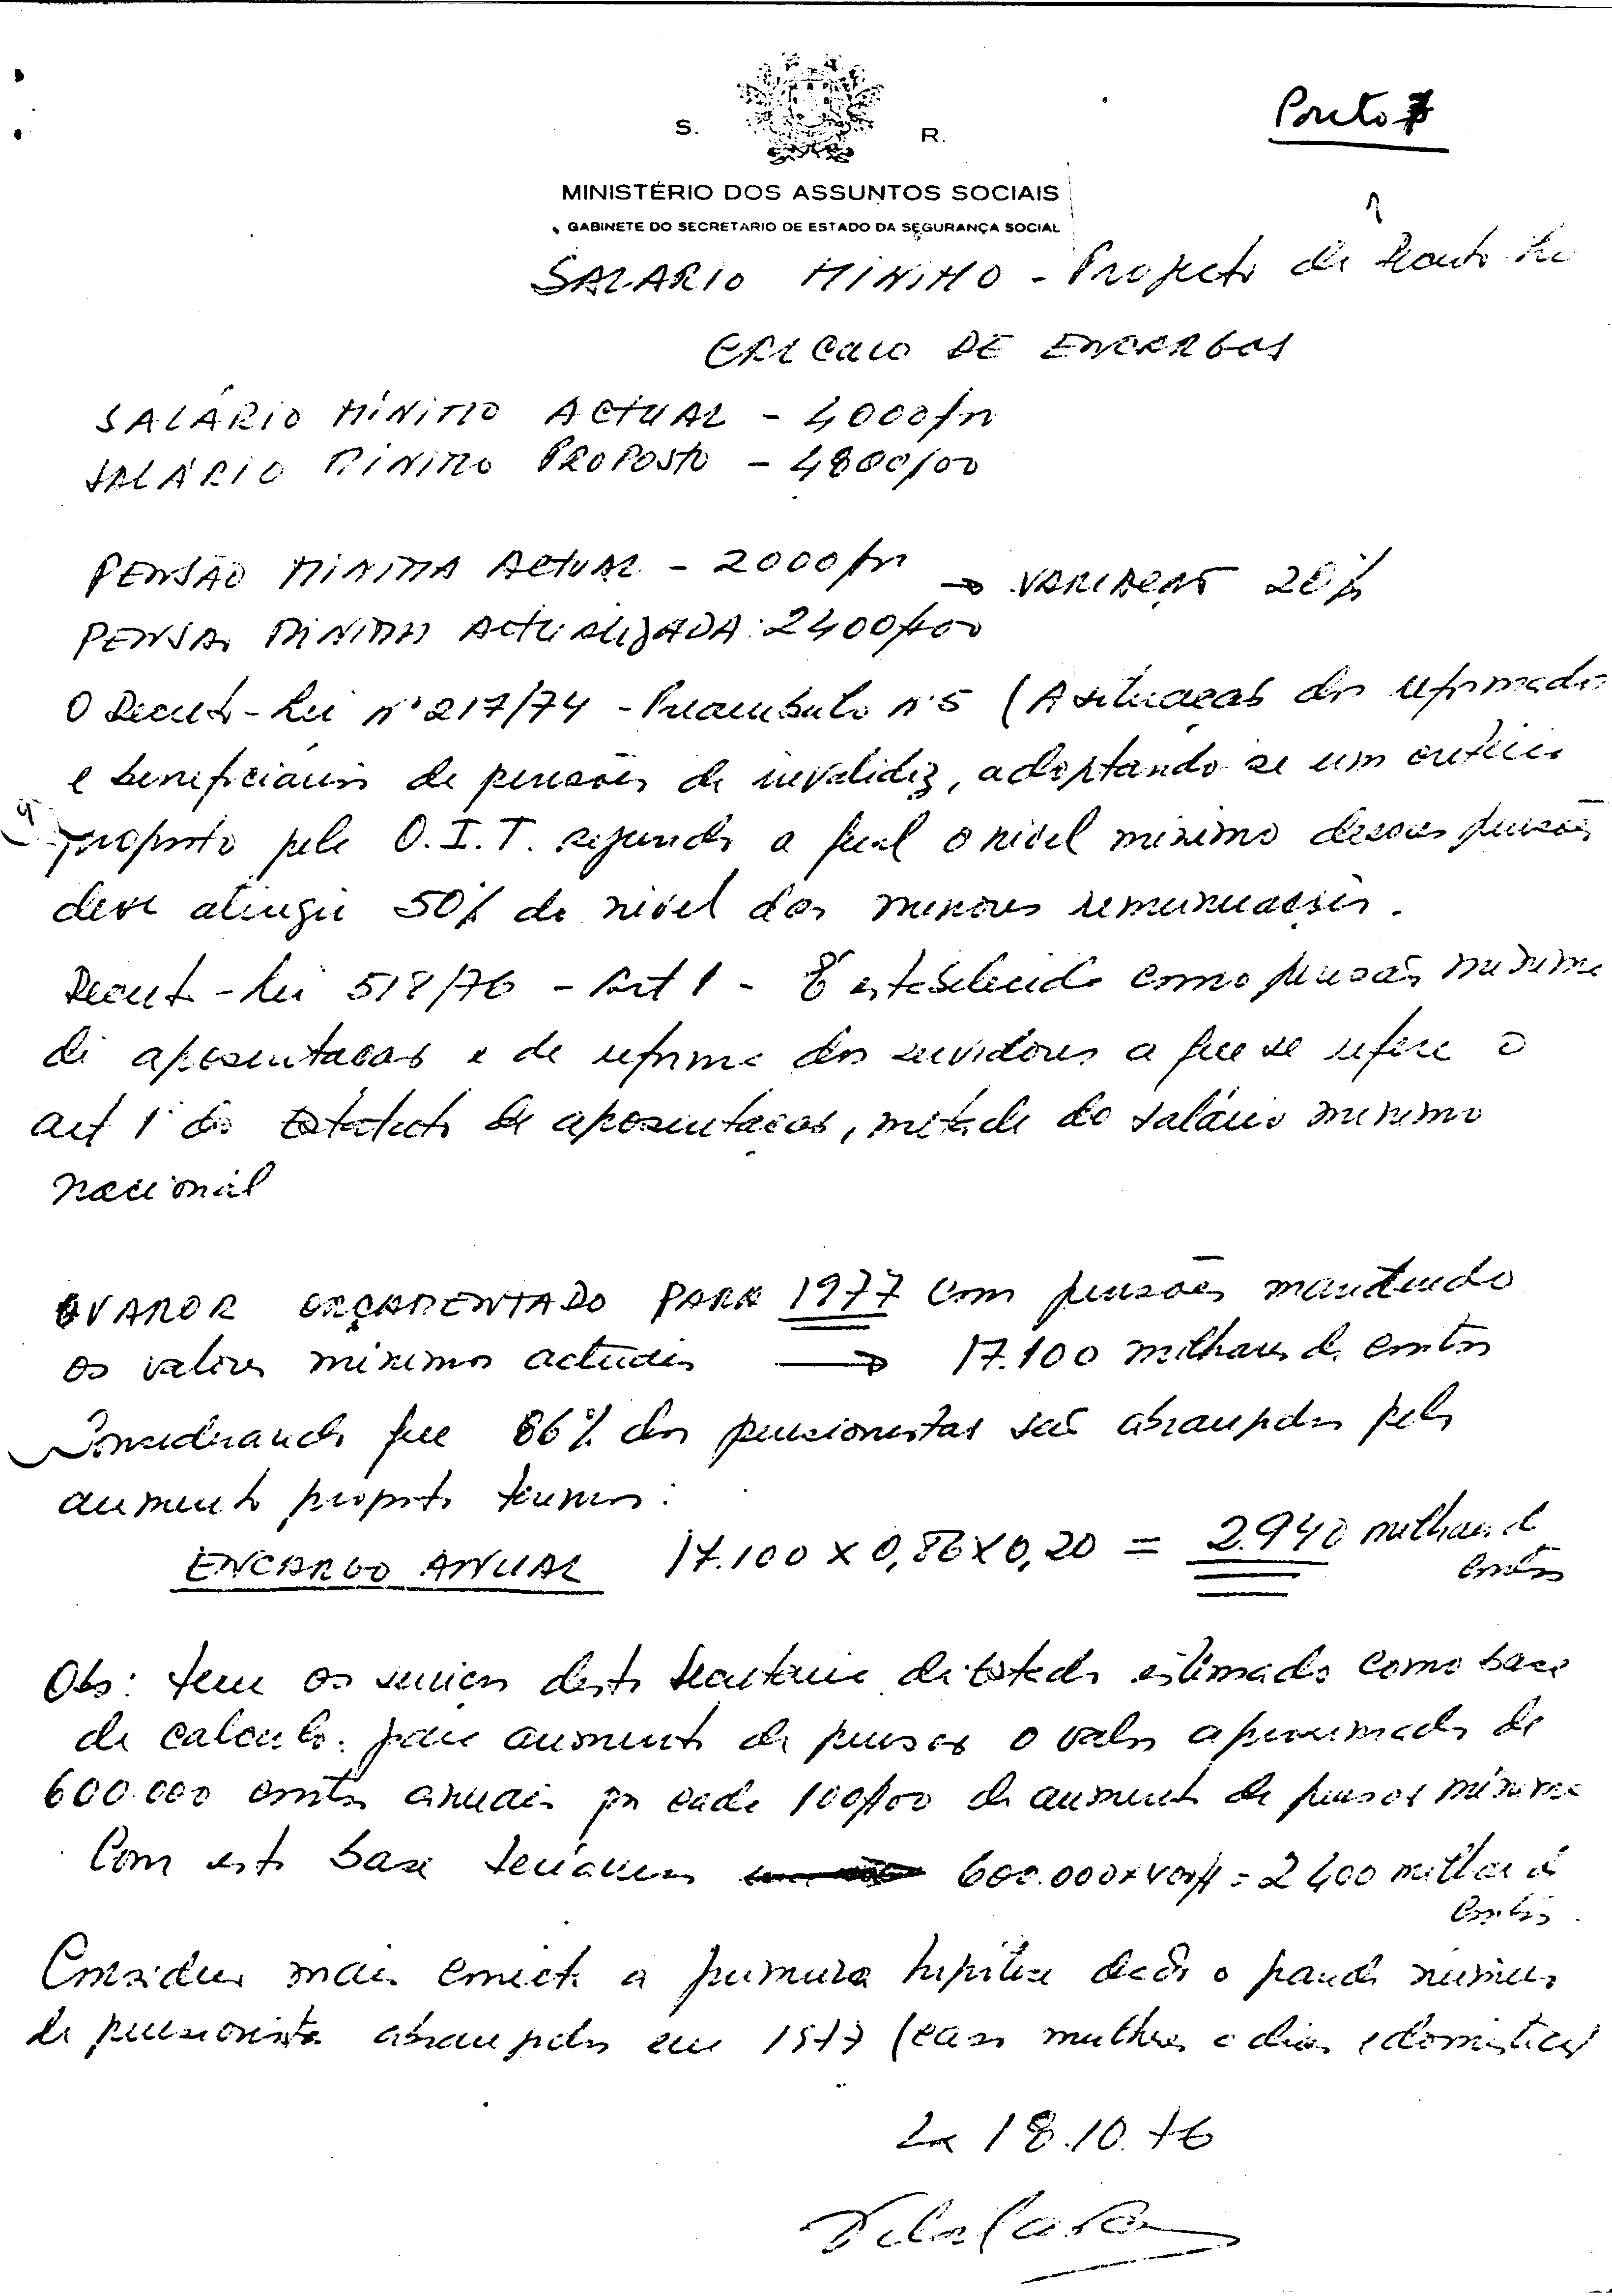 Ponto 7
S. R.
MINISTÉRIO DOS ASSUNTOS SOCIAIS
GABINETE DO SECRETARIO DE ESTADO DA SEGURANÇA SOCIAL
SALARIO MINIMO - Projecto de Decreto Lei
CALCULO DE ENCARGOS
SALÁRIO MÍNIMO ACTUAL - 4000$00
SALÁRIO MÍNIMO PROPOSTO - 4800$00
PENSÃO MINIMA ACTUAL - 2000$00 → VARIAÇÃO 20%
PENSÃO MINIMA ACTUALIZADA: 2400$00
O Decreto-Lei nº 217/74 - Preambulo nº 5 (A situação dos reformados
e beneficiários de pensões de invalidez, adoptando-se um critério
proposto pela O.I.T. segundo a qual o nivel minimo dessas pensões
deve atingir 50% do nivel das menores remunerações.
Decreto-Lei 518/76 - Art 1 - É estabelecido como pensão minima
de aposentação e de reforma dos servidores a que se refere o
art 1º do Estatuto da aposentação, metade do salário minimo
nacional
VALOR ORÇAMENTADO PARA 1977 com pensões mantendo
os valores minimos actuais → 17.100 milhares de contos
Considerando que 86% dos pensionistas são abrangidos pelo
aumento proposto teremos:
ENCARGO ANUAL 17.100 x 0,86 x 0,20 = 2.940 milhares de
contos
Obs: tem os serviços desta Secretaria de Estado estimado como base
de calculo para aumento de pensões o valor aproximado de
600.000 contos anuais por cada 100$00 de aumento de pensão minima
Com esta base teriamos 600.000 x 400$ = 2 400 milhares de
contos.
Considero mais correcta a primeira hipótese dado o grande número
de pensionistas abrangidos em 1977 (caso mulheres a dias e domésticas)
Lx 18.10.76